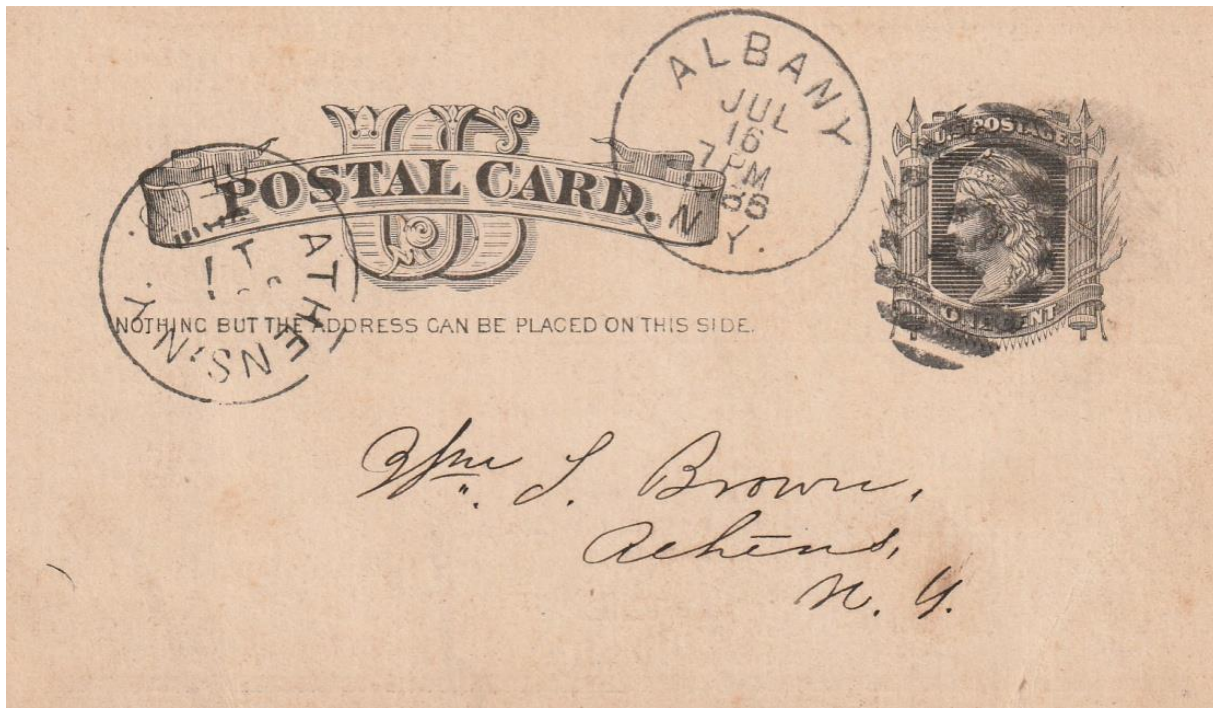 ALBANY
JUL
16
7 PM
N.Y.
US
POSTAL CARD.
U.S. POSTAGE
ONE CENT
ATHENS, N.Y.
NOTHING BUT THE ADDRESS CAN BE PLACED ON THIS SIDE.
Wm. S. Brown,
Athens,
N. Y.